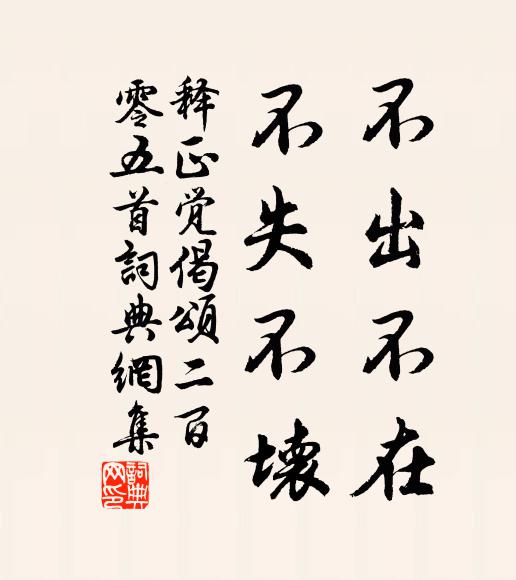 不出不在
不失不壊
释正覚偈頌二百
零五首詞典網集
詞典网印